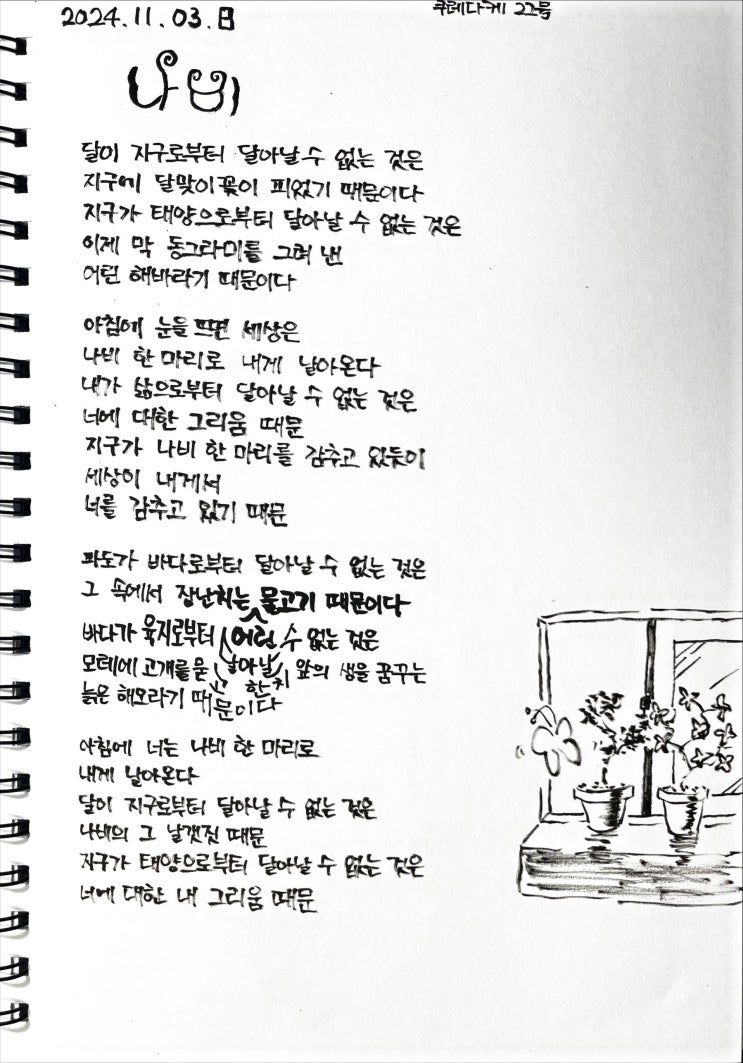 2024.11.03.日
쿠테타케 그그믐
나비
달이 지구로부터 달아날 수 없는 것은
지구에 달맞이꽃이 피었기 때문이다
지구가 태양으로부터 달아날 수 없는 것은
이제 막 동그라미를 그려 낸
어린 해바라기 때문이다
아침에 눈을 뜨면 세상은
나비 한 마리로 내게 날아온다
내가 삶으로부터 달아날 수 없는 것은
너에 대한 그리움 때문
지구가 나비 한 마리를 감추고 있듯이
세상이 내게서
너를 감추고 있기 때문
파도가 바다로부터 달아날 수 없는 것은
그 속에서 장난치는 어린 물고기 때문이다
바다가 육지로부터 달아날 수 없는 것은
모래에 고개를 묻고 한치 앞의 생을 꿈꾸는
늙은 해오라기 때문이다
아침에 너는 나비 한 마리로
내게 날아온다
달이 지구로부터 달아날 수 없는 것은
나비의 그 날갯짓 때문
지구가 태양으로부터 달아날 수 없는 것은
너에 대한 내 그리움 때문